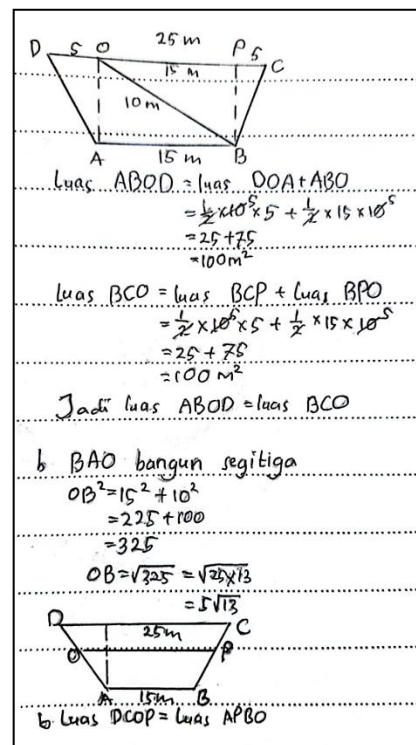 25 m
D 5 O P 5 C
15 m
10 m
A 15 m B
Luas ABOD = luas DOA + ABO
= 1/2 x 10 5 x 5 + 1/2 x 15 x 10 5
= 25 + 75
= 100 m²
Luas BCO = luas BCP + luas BPO
= 1/2 x 10 5 x 5 + 1/2 x 15 x 10 5
= 25 + 75
= 100 m²
Jadi luas ABOD = luas BCO
b BAO bangun segitiga
OB² = 15² + 10²
= 225 + 100
= 325
OB = √325 = √25x13
= 5√13
D C
25 m
O P
A 15 m B
b. Luas DCOP = Luas APBO